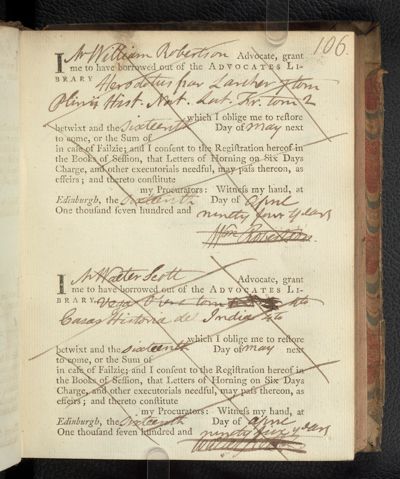 106.
I Mr William Robertson Advocate, grant
me to have borrowed out of the ADVOCATES LI-
BRARY Herodotus par Larcher 7 tom
Plinii Hist. Nat. Lat. Fr. tom 2
which I oblige me to reſtore
betwixt and the Sixteenth Day of May next
to come, or the Sum of
in caſe of Failzie; and I conſent to the Regiſtration hereof in
the Books of Seſſion, that Letters of Horning on Six Days
Charge, and other executorials needful, may paſs thereon, as
effeirs; and thereto conſtitute
my Procurators: Witneſs my hand, at
Edinburgh, the Sixteenth Day of April
One thouſand ſeven hundred and ninety four years
Wm Robertson.
I Mr Walter Scott Advocate, grant
me to have borrowed out of the ADVOCATES LI-
BRARY, Opera tom 4to
Casas Historia de India 4to
which I oblige me to reſtore
betwixt and the sixteenth Day of May next
to come, or the Sum of
in caſe of Failzie; and I conſent to the Regiſtration hereof in
the Books of Seſſion, that Letters of Horning on Six Days
Charge, and other executorials needful, may paſs thereon, as
effeirs; and thereto conſtitute
my Procurators: Witneſs my hand, at
Edinburgh, the Sixteenth Day of April
One thouſand ſeven hundred and ninety four years
Walter Scott